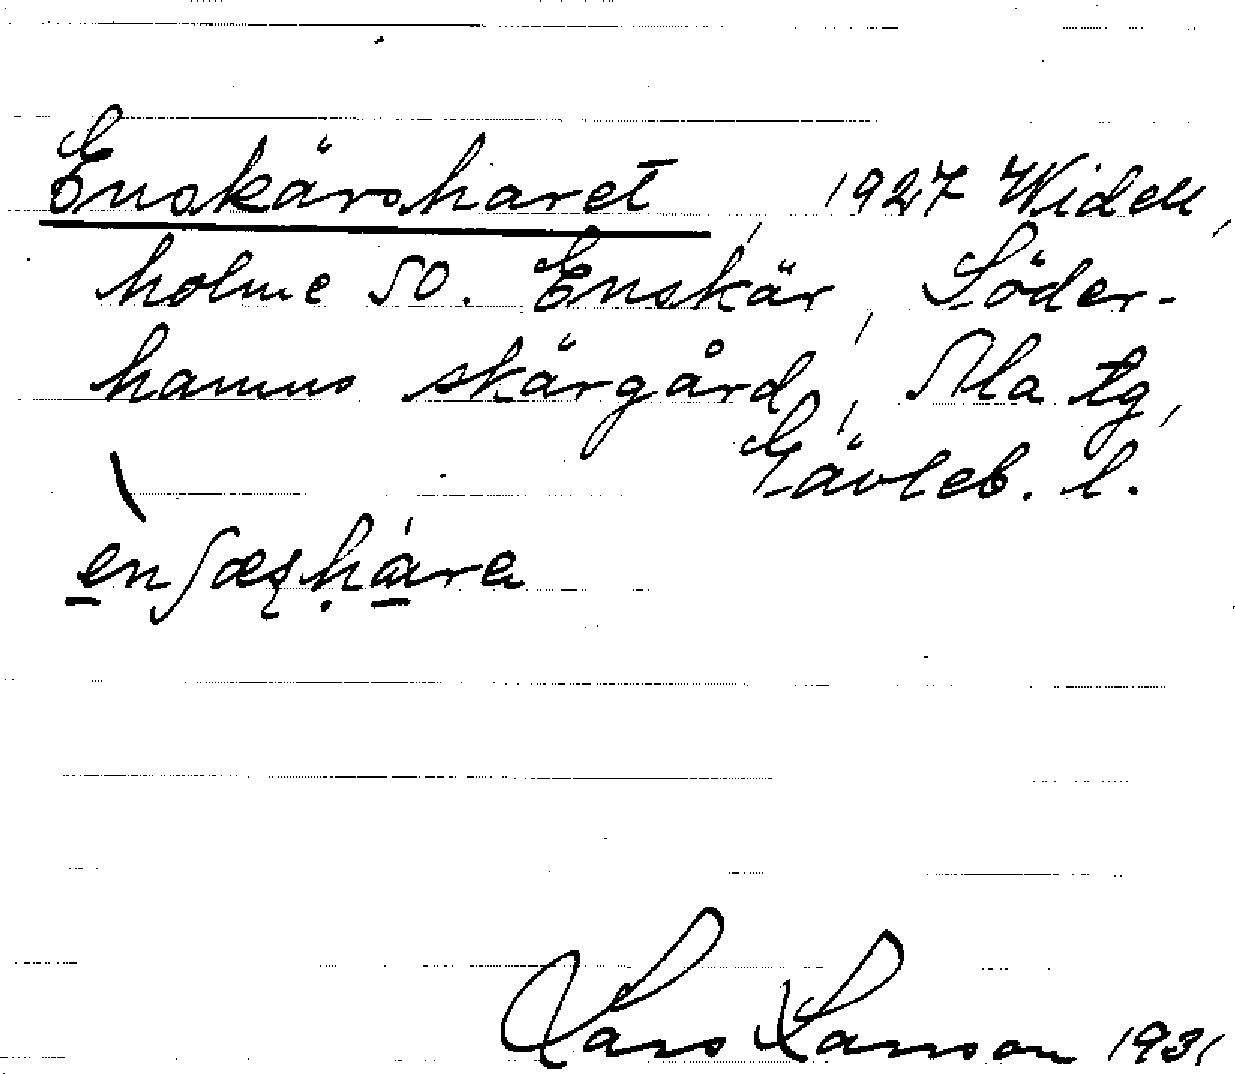 Enskärsharet, 1927 Widell,
holme SO. Enskär, Söder-
hamns skärgård, Ala tg,
Gävleb. l.
enʃæʂhára
Lars Larsson 1931